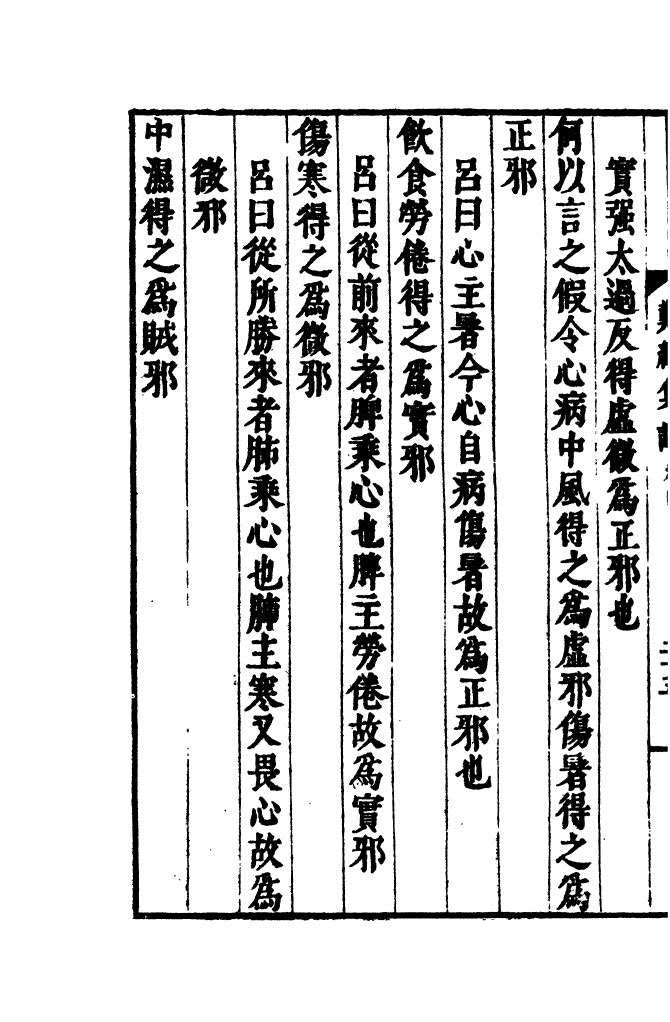 實强太過反得虛微爲正邪也
何以言之假令心病中風得之爲虛邪傷暑得之爲
正邪
呂曰心主暑今心自病傷暑故爲正邪也
飲食勞倦得之爲實邪
呂曰從前來者脾乘心也脾主勞倦故爲實邪
傷寒得之爲微邪
呂曰從所勝來者肺乘心也肺主寒又畏心故爲
微邪
中濕得之爲賊邪